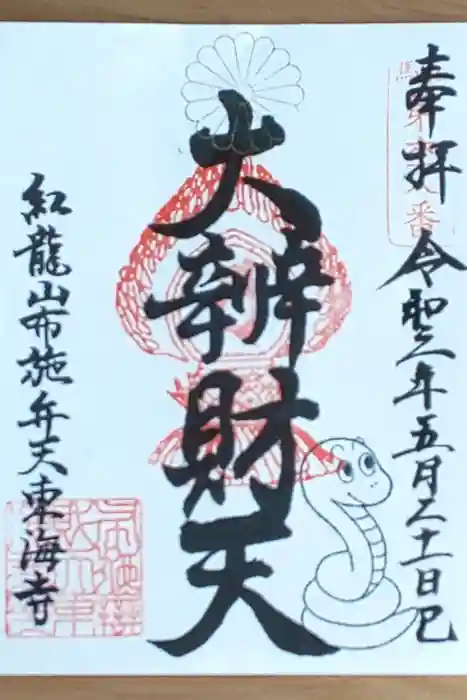 奉拝
令和二年五月二十一日巳
大辨財天
紅龍山布施弁天東海寺